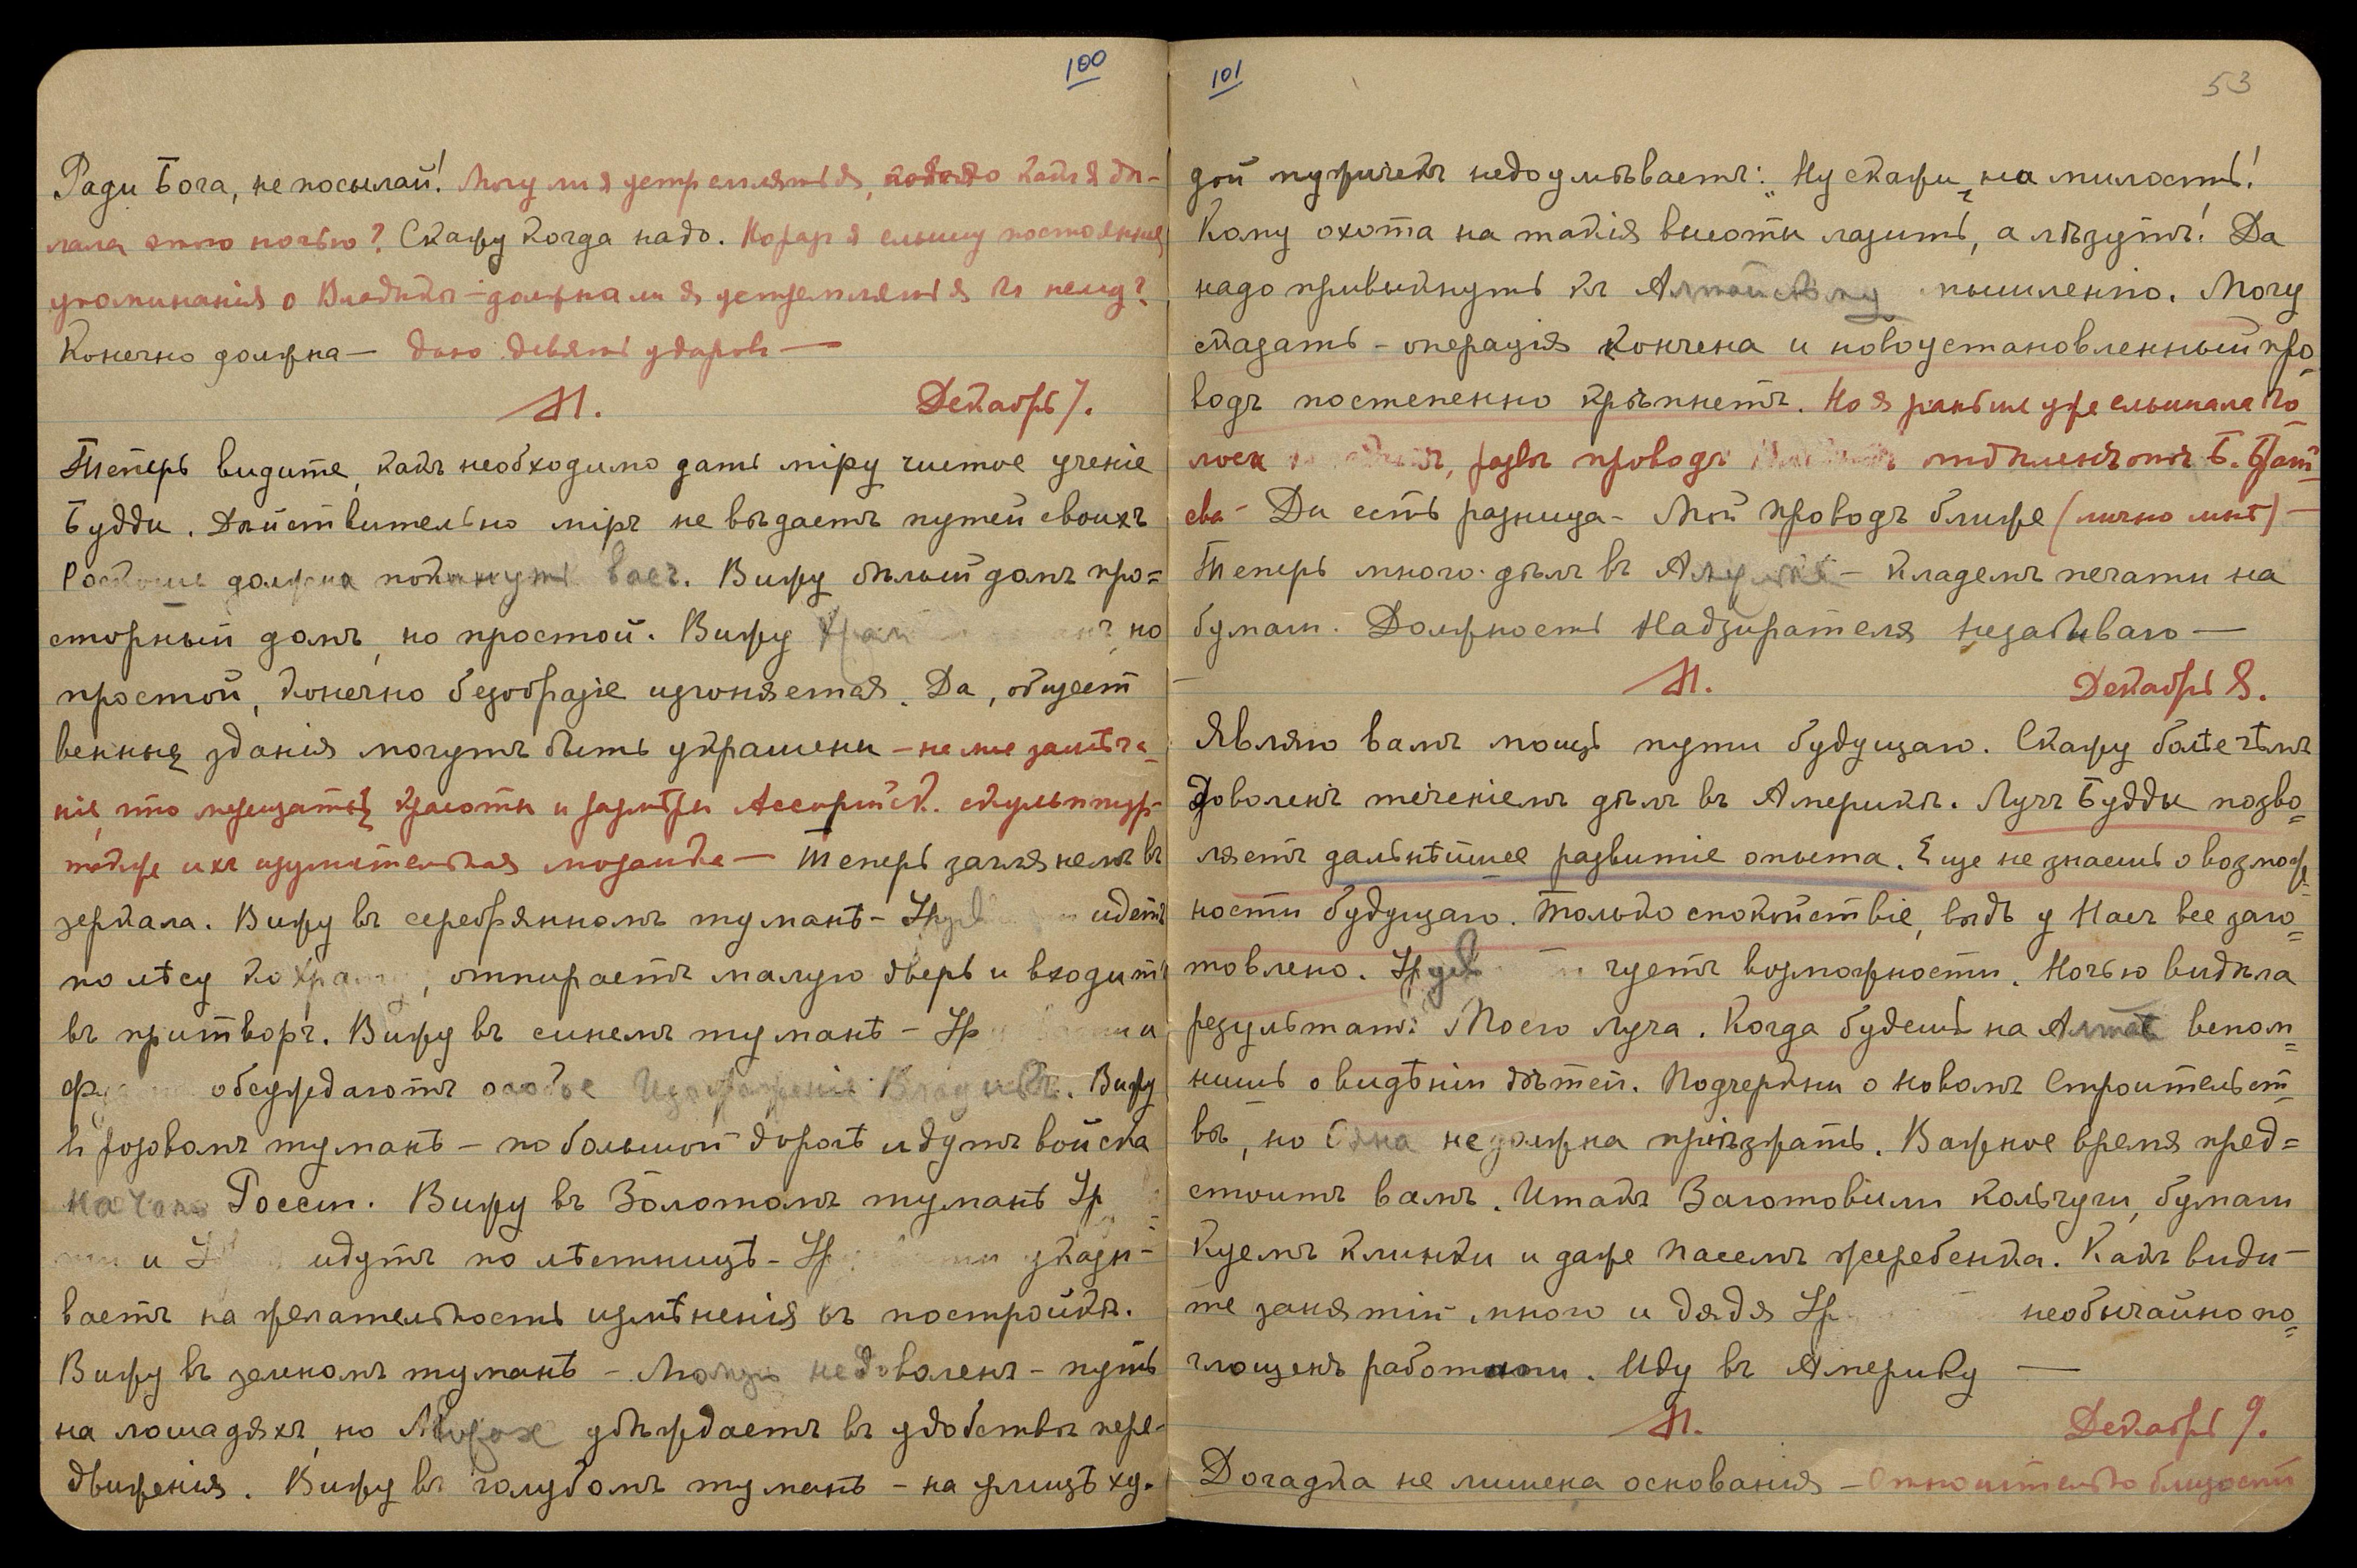 100
Ради Бога, не посылай! Могу ли я устремляться, какъ я дѣ-
лала этою ночью? Скажу когда надо. Когда я слышу постоянныя
упоминанія о Владыкѣ – должна ли я устремляться къ нему?
Конечно должна — даю девять ударовъ —
М. Декабрь 7.
Теперь видите, какъ необходимо дать міру чистое ученіе
Будды. Дѣйствительно міръ не вѣдаетъ путей своихъ
Роскошь должна покинуть васъ. Вижу бѣлый домъ про=
сторный домъ, но простой. Вижу Храм но
простой, конечно безобразіе изгоняется. Да, общест
венныя зданія могутъ быть украшены – на мое замѣча-
ніе, что красоты и размѣры Ассирійск. скульптур-
также ихъ изумительная мозаика — Теперь заглянемъ въ
зеркала. Вижу въ серебрянномъ туманѣ – идетъ
по лѣсу ко храму, отпираетъ малую дверь и входитъ
въ притворъ. Вижу въ синемъ туманѣ – Ур и
обсуждаютъ особое Изображеніе Владыкъ. Вижу
въ розовомъ туманѣ – по большой дорогѣ идутъ войска
Россіи. Вижу въ Золотомъ туманѣ Ур
и идутъ по лѣстницѣ – Ур указы-
ваетъ на желательность измѣненія въ постройкѣ.
Вижу въ зеленомъ туманѣ – недоволенъ – путь
на лошадяхъ, но убѣждаетъ въ удобствѣ пере-
движенія. Вижу въ голубомъ туманѣ – на улицѣ ху-
101
53
дой мужичекъ недоумѣваетъ: „Ну скажи, на милость!
Кому охота на такія высоты лазить, а лѣзутъ! Да
надо привыкнуть къ Алтайскому мышленію. Могу
сказать – операція кончена и новоустановленный про-
водъ постепенно крѣпнетъ. Но я раньше уже слышала го
лоса, развѣ проводъ отъ Б. Брат-
ства – Да есть разница – Мой проводъ ближе (лично мнѣ) —
Теперь много дѣлъ въ – кладемъ печати на
бумаги. Должность Надзирателя не забываю —
М. Декабрь 8.
Являю вамъ мощь пути будущаго. Скажу болѣе чѣмъ
доволенъ теченіемъ дѣлъ въ Америкѣ. Лучъ Будды позво-
ляетъ дальнѣйшее развитіе опыта. Еще не знаешь о возмож-
ности будущаго. Только спокойствіе, вѣдь у Насъ все заго=
товлено. чуетъ возможности. Ночью видѣла
результатъ Моего луча. Когда будешь на Алтаѣ вспом=
нишь о видѣніи дѣтей. Подчеркни о новомъ Строительст-
вѣ, но не должна пріѣзжать. Важное время пред=
стоитъ вамъ. Итакъ Заготовили кольчуги, бумаги
Куемъ клинки и даже пасемъ жеребенка. Какъ види-
те занятій много и дядя Ур необычайно по=
глощенъ работами. Иду въ Америку —
М. Декабрь 9.
Догадка не лишена основанія – Относительно близости